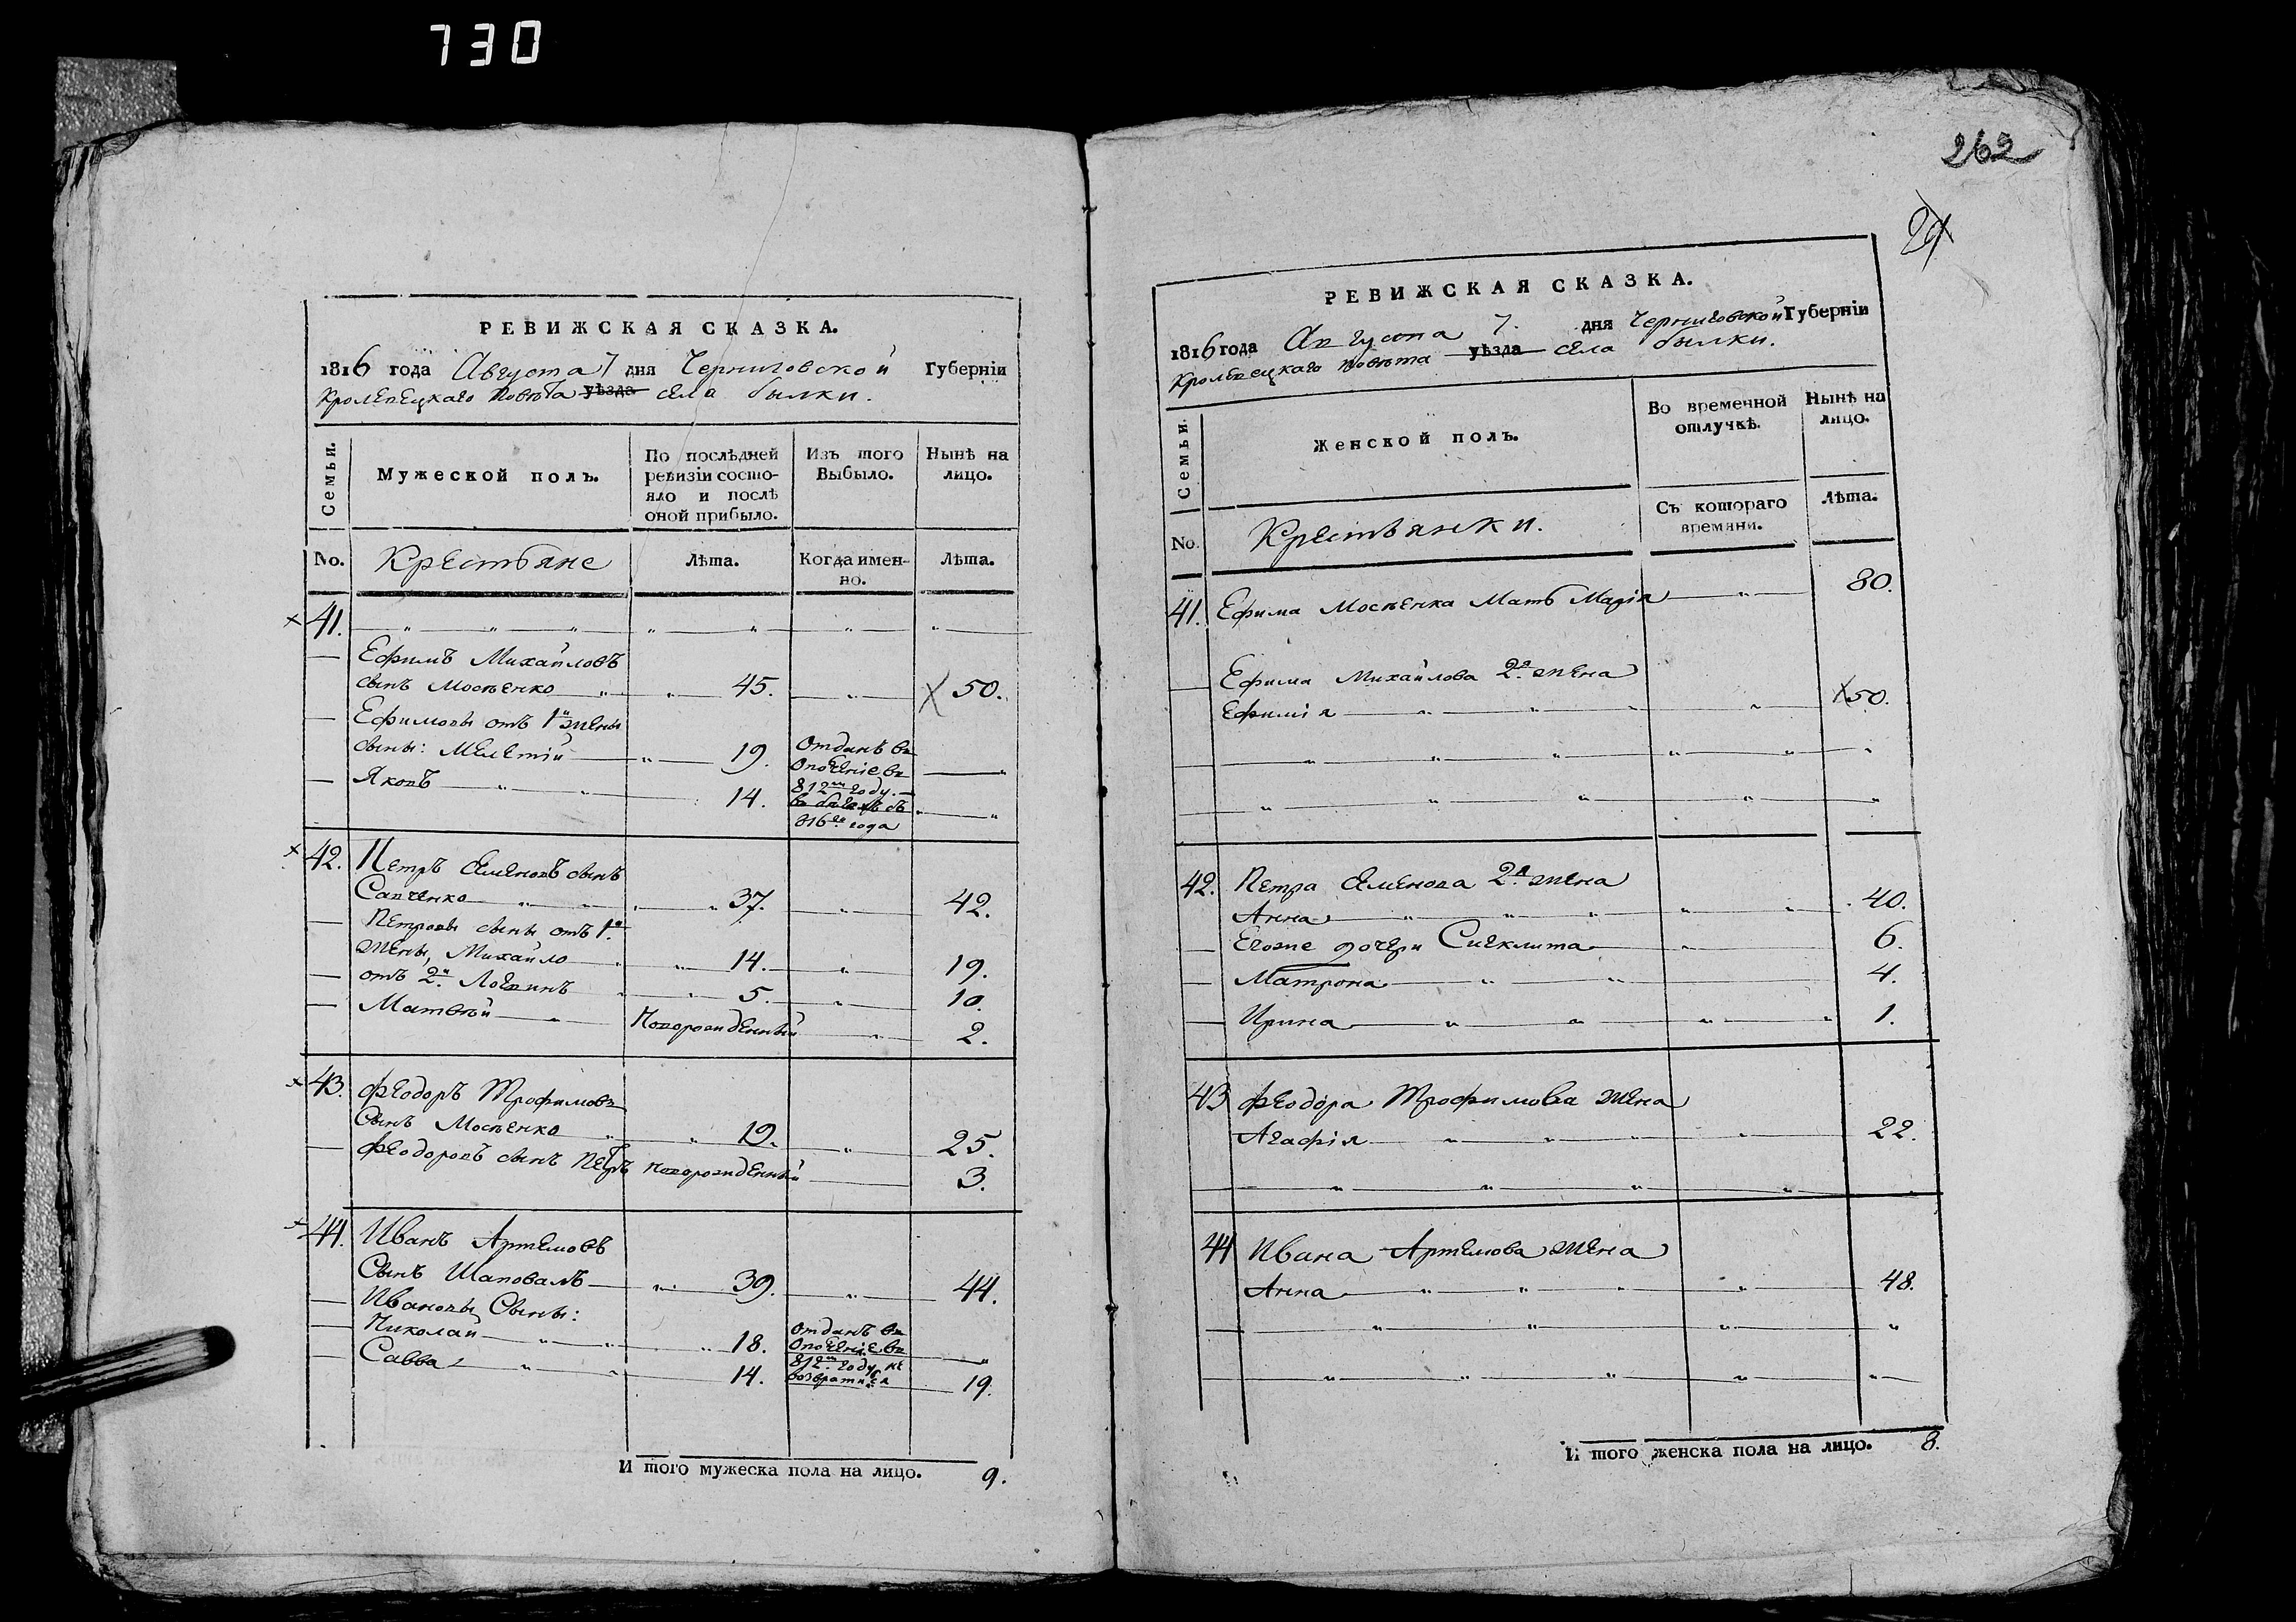 730
РЕВИЖСКАЯ СКАЗКА.
1816 года Августа 7 дня Черниговской Губерніи
Кролевецкаго повѣта уѣзда села былки.
Семьи.
Мужеской полъ.
По послѣдней ревизіи состояло и послѣ оной прибыло.
Изъ того Выбыло.
Нынѣ на лицо.
No.
Крестьяне
Лѣта.
Когда именно.
Лѣта.
41.
Ефимъ Михайловъ
сынъ Мосѣенко 45. 50.
Ефимовы отъ 1й жены
сыны: Мелетій 19. Отданъ въ
ополченіе въ
812м году.
Яковъ 14. въ бегахъ съ
816го года
42. Петръ Семеновъ сынъ
Савченко 37. 42.
Петровы сыны отъ 1й
жены, Михайло 14. 19.
отъ 2й Логвинъ 5. 10.
Матвѣй Новорожденный 2.
43. Феодоръ Трофимовъ
Сынъ Мосѣенко 19. 25.
Феодоровъ сынъ Петръ новорожденный 3.
44. Иванъ Артемовъ
Сынъ Шаповалъ 39. 44.
Ивановы Сыны:
Николай 18. отданъ въ
Ополченіе въ
812м году не
возвратился
Савва 14. 19.
И того мужеска пола на лицо. 9.
262
РЕВИЖСКАЯ СКАЗКА.
1816 года Августа 7. дня Черниговской Губерніи
Кролевецкаго повѣта уѣзда села былки.
Семьи.
Женской полъ.
Во временной отлучкѣ.
Нынѣ на лицо.
No.
Крестьянки.
Съ котораго времяни.
Лѣта.
41. Ефима Мосѣенка Мать Марія 80.
Ефима Михайлова 2я жена
Ефимія 50.
42. Петра Семенова 2я жена
Анна 40.
Егоже дочери Сиклита 6.
Матрона 4.
Ирина 1.
43 Феодора Трофимова жена
Агафія 22.
44 Ивана Артемова жена
Анна 48.
И того женска пола на лицо. 8.